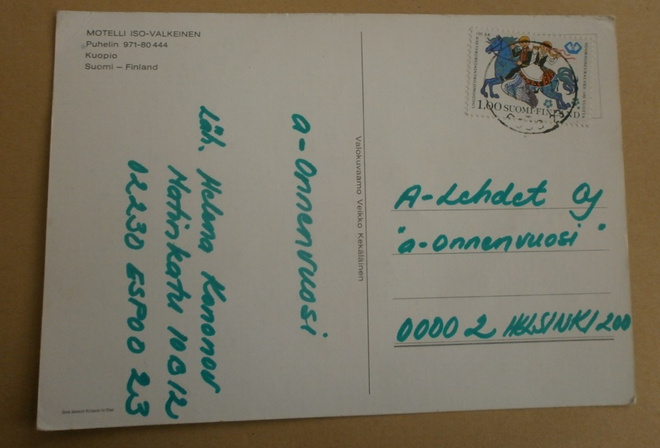 MOTELLI ISO-VALKEINEN
Puhelin 971-80444
Kuopio
Suomi – Finland
a-onnenvuosi
Läh. Helena Kononov
Matinkatu 10 C 12
02230 ESPOO 23
Valokuvaamo Veikko Kekäläinen
1.00 SUOMI-FINLAND
A-Lehdet Oy
"a-onnenvuosi"
00002 HELSINKI 200